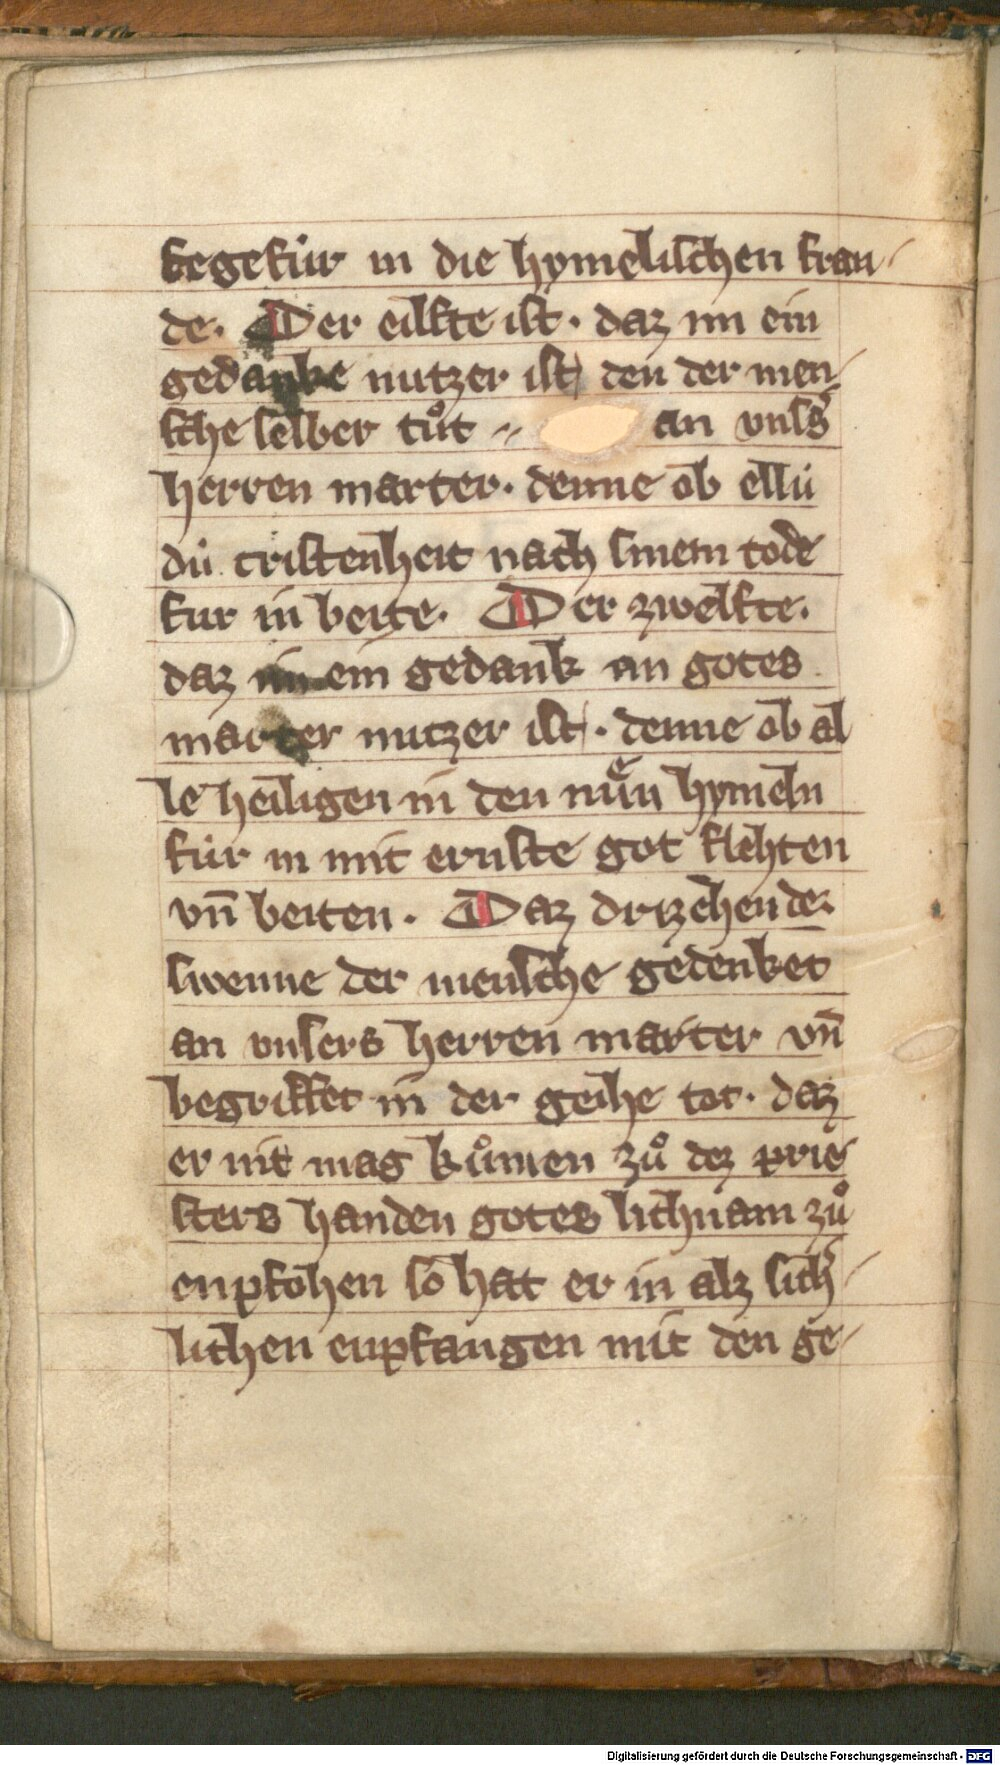 fegefúr in die hymelischen frau-
de. Der eilfte ist. daz im ein
gedanke nutzer ist den der men-
sche selber tůt an vnsers
herren marter. denne ob ellú
dú cristenheit nach sinem tode
fur in beite. Der zwelfte.
daz im ein gedank an gotes
marter nutzer ist. denne ob al
le heiligen in den nún hymeln
fúr in mit ernste got flehten
vn̄ beiten. Daz drizehende.
swenne der mensche gedenket
an vnsers herren marter vn̄
begriffet in der gehe tot. daz
er nit mag kůmen zů dez prie
sters handen gotes lichnam zů
enpfohen so hat er in alz sich-
lichen enpfangen mit den ge-
Digitalisierung gefördert durch die Deutsche Forschungsgemeinschaft - DFG